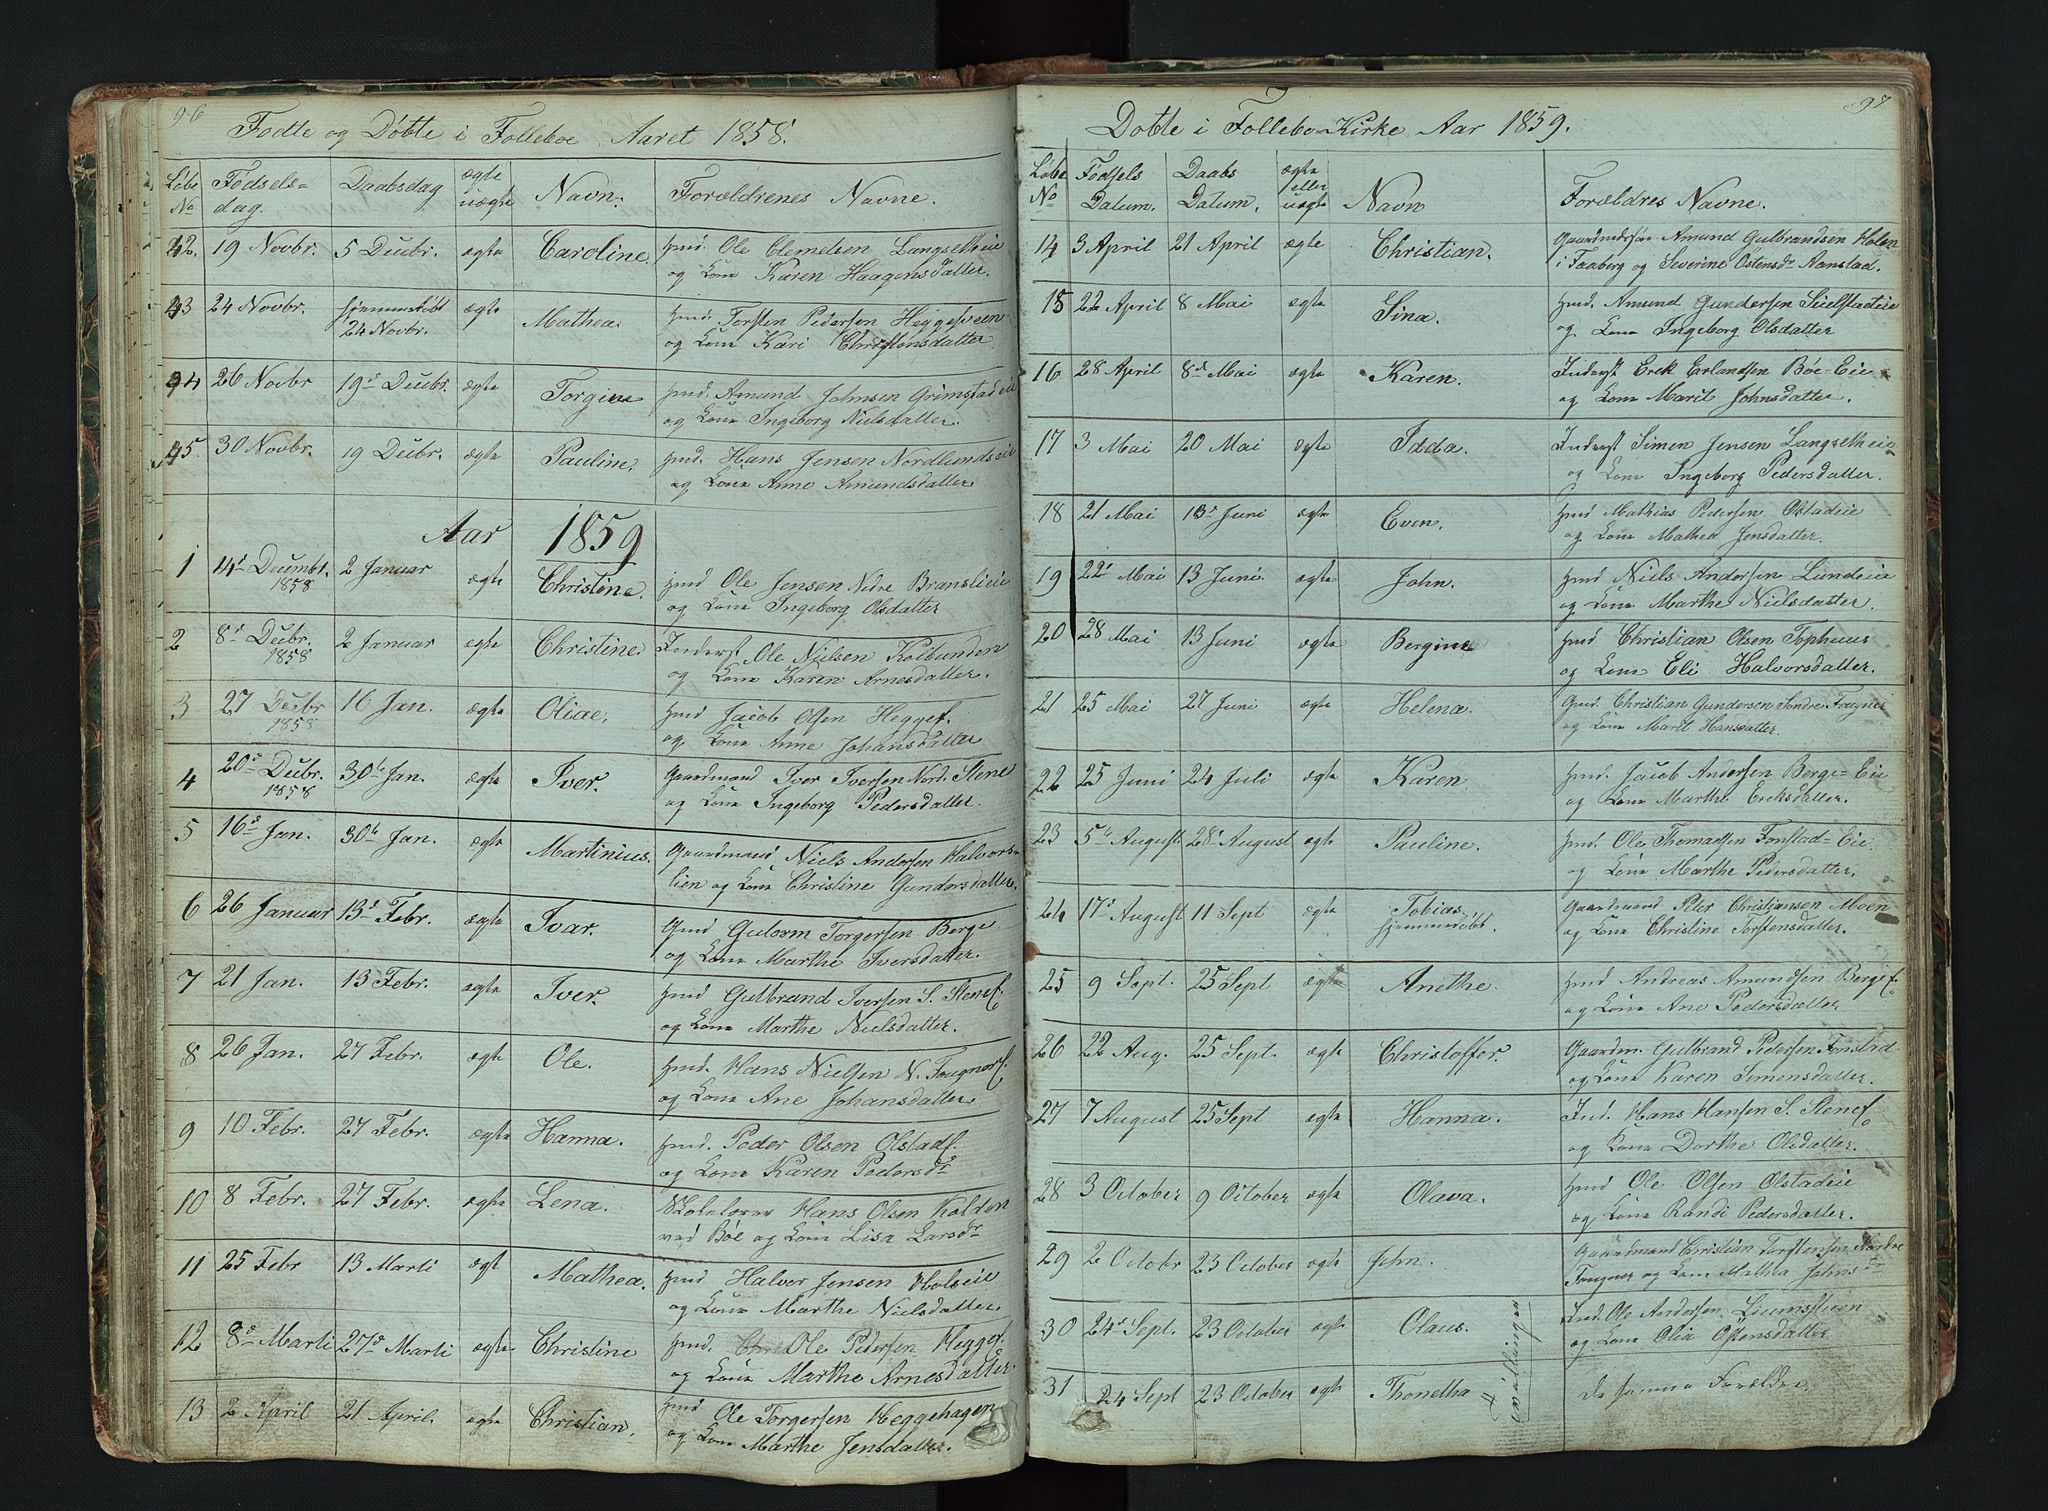 96
Fødte og Døbte i Folleboe Aaret 1858.
Løbe No Fødselsdag. Daabsdag ægte uægte Navn. Forældrenes Navne.
42. 19 Novbr. 5 Decbr. ægte Caroline. Hmd. Ole Clemetsen Langsetheie
og Kone Karen Haagensdatter.
43 24 Novbr. hjemmedøbt 24 Novbr. ægte Mathea. Hmd. Torsten Pedersen Heggesveen
og Kone Kari Christensdatter
44 26 Novbr 19de Decbr. ægte Torgine Hmd. Amund Johnsen Grimstadeie
og Kone Ingeborg Nielsdatter.
45. 30 Novbr. 19 Decbr. ægte Pauline. Hmd. Hans Jensen Nordlundseie
og Kone Anne Amundsdatter.
Aar 1859
1 14de Decembr. 1858 2 Januar ægte Christine. Hmd Ole Jensen Nedre Branslieie
og Kone Ingeborg Olsdatter
2 8de Decbr. 1858 2 Januar ægte Christine Inderst Ole Nielsen Kolbunden
og Kone Karen Arnesdatter.
3 27 Decbr 1858 16 Jan. ægte Oliae. Hmd Jacob Olsen Heggef.
og Kone Anne Johansdatter
4 20de Decbr. 1858 30te Jan. ægte Iver. Gaardmand Iver Iversen Nord. Stene
og Kone Ingeborg Pedersdatter.
5 16de Jan. 30te Jan. ægte Martinius. Gaardmand Niels Andersen Halvors-
lien og Kone Christine Gundersdatter.
6 26 Januar 13de Febr. ægte Ivar. Hmd Guttorm Torgersen Berge
og Kone Marthe Iversdatter.
7 21 Jan. 13 Febr. ægte Iver. Hmd Gulbrand Iversen S. Stenef.
og Kone Marthe Nielsdatter.
8 26 Jan. 27 Febr. ægte Ole. Hmd. Hans Nielsen N. Fougnerf.
og Kone Ane Johansdatter.
9 10 Febr. 27 Febr. ægte Hanna. Hmd. Peder Olsen Olstadf.
og Kone Karen Pedersdr
10 8 Febr. 27 Febr. ægte Lena. Skolelærer Hans Olsen Kolden
ved Bøe og Kone Lisa Larsdr
11 25 Febr 13 Marti ægt Mathea. Hmd Halvor Jensen Holseie
og Kone Marthe Nielsdatter.
12 8de Marti 27de Marti ægte Christine Hmd. Ole Pedersen Heggef.
og Kone Marthe Arnesdatter.
13 2 April 21 April. ægte Christian. Hmd Ole Torgersen Heggehagen
og Kone Marthe Jensdatter.
97
Døbte i Follebo Kirke Aar 1859.
Løbe No Fødsels Datum. Daabs Datum. ægte eller uægte Navn Forældres Navne.
14 3 April 21 April ægte Christian. Gaardmdsøn Amund Gulbrandsen Holen
i Faaberg og Severine Ostensdr Aanstad.
15 22 April 8 Mai ægte Sina. Hmd. Amund Gundersen Sielstadeie
og Kone Ingeborg Olsdatter
16 28 April 8de Mai ægte Karen. Inderst Erek Erlandsen Bøe-Eie
og Kone Marit Johnsdatter.
17 3 Mai 20 Mai ægte Idda. Inderst Simen Jensen Langsetheie
og Kone Ingeborg Pedersdatter.
18 21 Mai 13de Juni ægte Even. Hmd Mathias Pedersen Olstadeie
og Kone Mathea Jensdatter.
19 22de Mai 13 Juni. ægte John. Hmd Niels Andersen Lundeie
og Kone Marthe Nielsdatter.
20 28 Mai 13 Juni ægte Bergine Hmd Christian Olsen Tophuus
og Kone Eli Halvorsdatter.
21 25 Mai 27 Juni ægte Helena. Gmd. Christian Gundersen Søndre Fougner
og Kone Marit Hansdatter.
22 25 Juni 24 Juli ægte Karen Hmd. Jacob Andersen Berge-Eie
og Kone Marthe Ereksdatter.
23 5te August 28de August ægte Pauline. Hmd. Ole Thomassen Fonstad-Eie.
og Kone Marthe Pedersdatter.
24 17de August 11 Sept ægte Tobias, hjemmedøbt. Gaardmand Peter Christiansen Moen
og Kone Christine Torstensdatter.
25 9 Sept. 25 Sept ægte Anethe. Hmd Andreas Amundsen Bergef.
og Kone Ane Pedersdatter
26 22 Aug. 25 Sept. ægte Christoffer. Gaardm. Gulbrand Pedersen Fonstad
og Kone Karen Simensdatter.
27 7 August 25 Sept ægte Hanna. Ind. Hans Hansen S. Stenef.
og Kone Dorthe Olsdatter.
28 3 October 9 October ægte Olava. Hmd Ole Olsen Olstadeie
og Kone Randi Pedersdatter.
29 2 Octobr 23 October ægte John. Gaardmand Christian Torstensen Nordre
Fougner og Kone Mathea Johnsdr
30 24de Sept. 23 October ægte Olaus. Ind. Ole Andersen
og Kone Olia Østensdatter
31 24 Sept 23 October ægte Thonetha De samme Forældre
Tvillinger